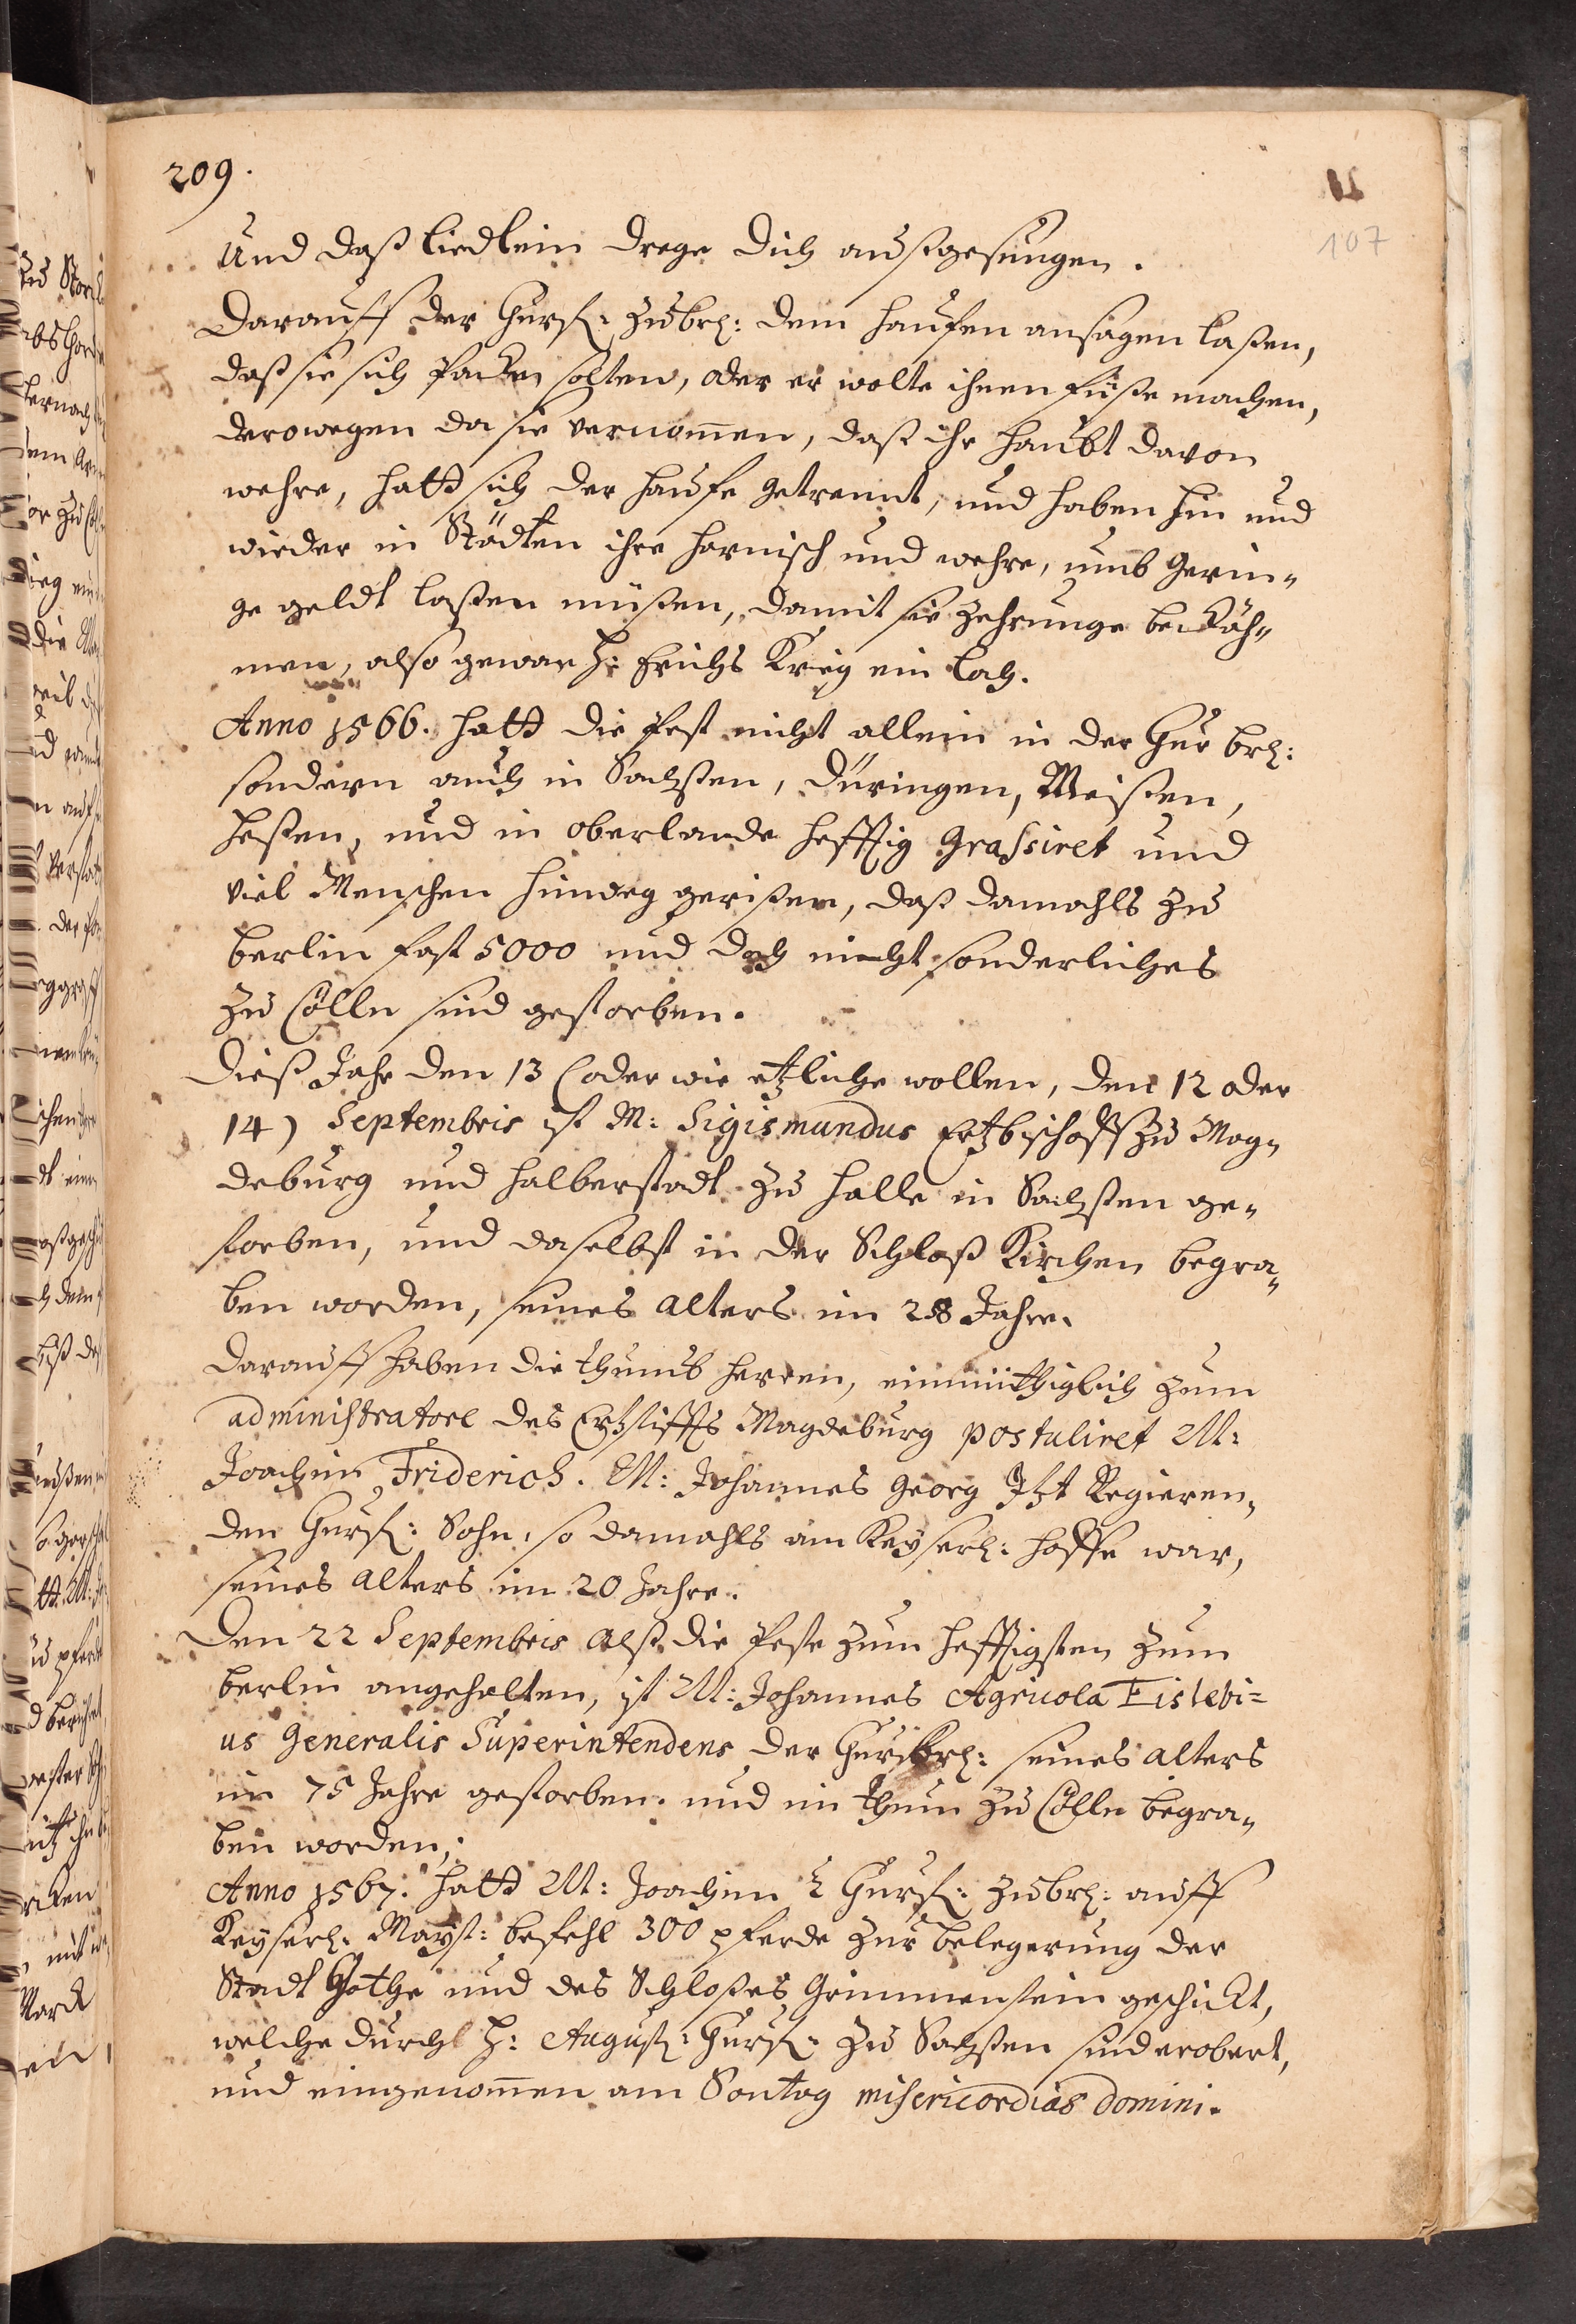 209.
107
Und daß liedlein drege dich außgesungen.
Darauff der Churf: zu brl: dem hauffen ansagen laßen,
daß sie sich packen solten, oder er wolte ihnen füße machen,
derowegen da sie vernom̄en, daß ihr haubt davon
wehre, hatt sich der hauffe getrennt, und haben hin und
wieder in Städten ihre harnisch und wehre, umb gerin„
ge geldt laßen müßen, damit sie zehrunge bekäh„
men, also gewan H: Erichs Krieg ein loch.
Anno 1566. hatt die Pest nicht allein in der Chur brl:
sondern auch in Sachßen, Düringen, Meißen,
Heßen, und in oberlande hefftig grassiret und
viel Menschen hinweg gerißen, daß damahls zu
berlin fast 5000 und doch nicht sonderliches
zu Cölln sind gestorben.
Dieß Jahr den 13 (oder wie etzliche wollen, den 12 oder
14) Septembris ist M: Sigismundus Ertzbischoff zu Mag„
deburg und halberstadt zu Halle in Sachßen ge„
storben, und daselbst in der Schloß Kirchen begra„
ben worden, seines alters im 28 Jahre.
Darauff haben die thumb herren, einmüthiglich zum
administratore des Ertzstiffts Magdeburg postuliret M:
Joachim Friderich. M: Johannes Georg Itzt Regieren„
den Churf: Sohn, so damahls am Keyserl: hoffe war,
seines alters im 20 Jahre.
Den 22 Septembris alß die Peste zum hefftigsten zum
berlin angehalten, ist M: Johannes Agricola Eislebi=
us Generalis Superintendens der Churbrl: seines alters
im 75 Jahre gestorben. und im Thum zu Cölln begra„
ben worden.
Anno 1567. hatt M: Joachim 2 Churf: zu brl: auff
Keyserl: Mayst: befehl 300 pferde zur belegerung der
Stadt Gotha und des Schloßes Grimmenstein geschickt,
welche durch H: August: Churf: zu Sachßen sind erobert,
und eingenom̄en am Sontag misericordias domini.